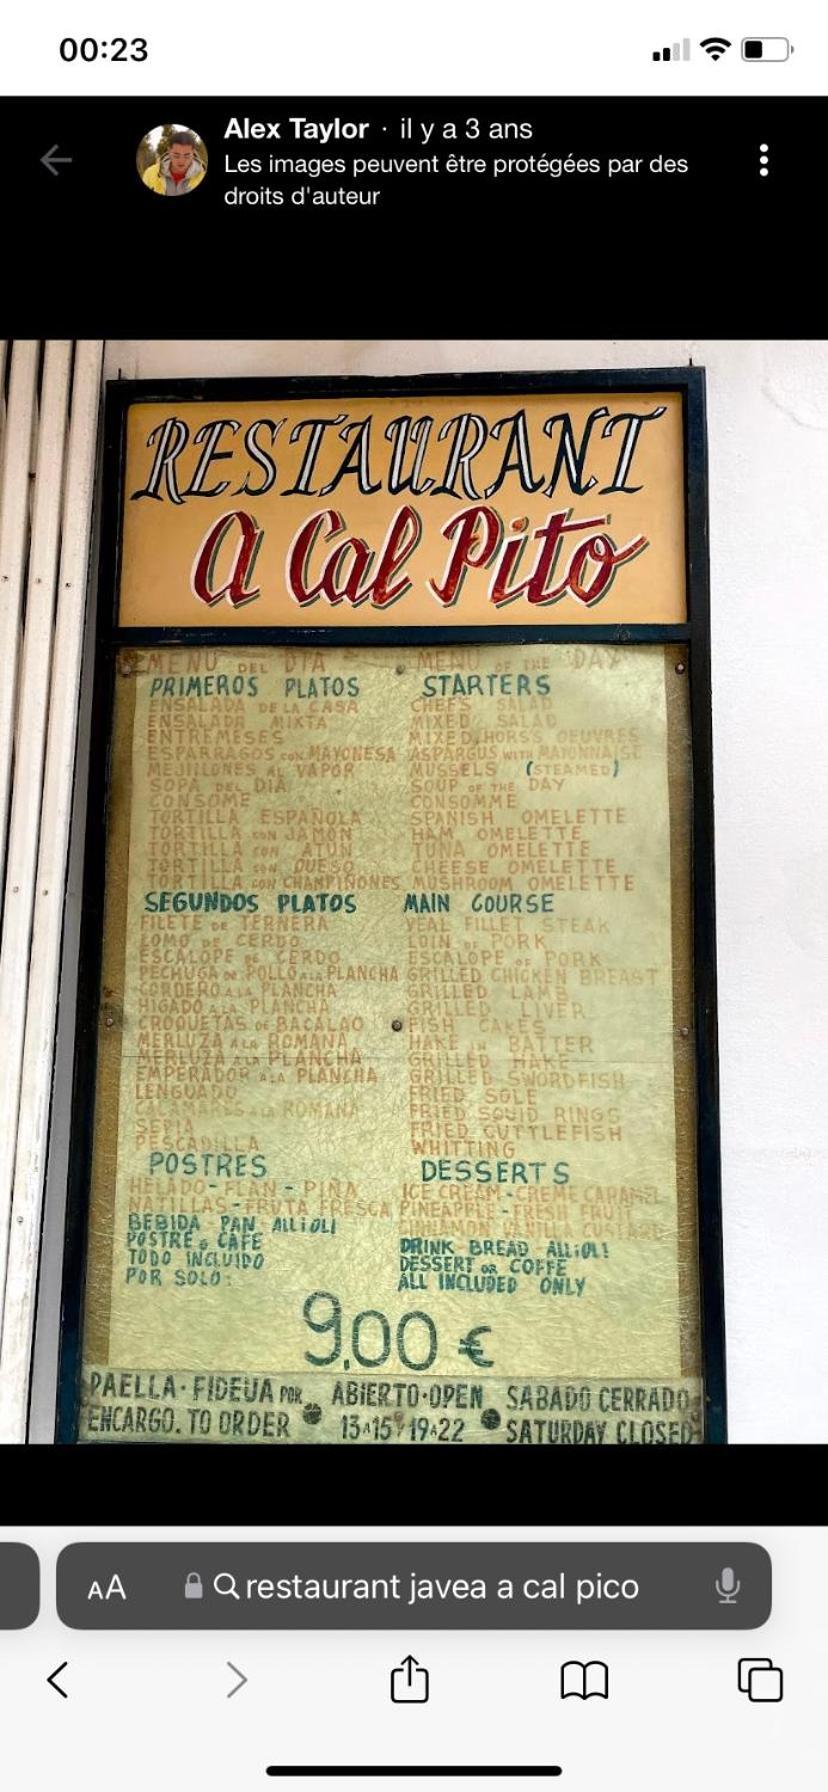 00:23
Alex Taylor · il y a 3 ans
Les images peuvent être protégées par des
droits d'auteur
RESTAURANT
A Cal Pito
MENU DEL DIA
PRIMEROS PLATOS
ENSALADA DE LA CASA
ENSALADA MIXTA
ENTREMESES
ESPARRAGOS CON MAYONESA
MEJILLONES AL VAPOR
SOPA DEL DIA
CONSOME
TORTILLA ESPAÑOLA
TORTILLA CON JAMON
TORTILLA CON ATUN
TORTILLA CON QUESO
TORTILLA CON CHAMPIÑONES
SEGUNDOS PLATOS
FILETE DE TERNERA
LOMO DE CERDO
ESCALOPE DE CERDO
PECHUGA DE POLLO A LA PLANCHA
CORDERO A LA PLANCHA
HIGADO A LA PLANCHA
CROQUETAS DE BACALAO
MERLUZA A LA ROMANA
MERLUZA A LA PLANCHA
EMPERADOR A LA PLANCHA
LENGUADO
CALAMARES A LA ROMANA
SEPIA
PESCADILLA
POSTRES
HELADO - FLAN - PIÑA
NATILLAS - FRUTA FRESCA
BEBIDA PAN ALLiOLI
POSTRE o CAFE
TODO INCLUIDO
POR SOLO:
MENU OF THE DAY
STARTERS
CHEFS SALAD
MIXED SALAD
MIXED HORS'S OEUVRES
ASPARGUS WITH MAYONNAISE
MUSSELS (STEAMED)
SOUP OF THE DAY
CONSOMME
SPANISH OMELETTE
HAM OMELETTE
TUNA OMELETTE
CHEESE OMELETTE
MUSHROOM OMELETTE
MAIN COURSE
VEAL FILLET STEAK
LOIN OF PORK
ESCALOPE OF PORK
GRILLED CHICKEN BREAST
GRILLED LAMB
GRILLED LIVER
FISH CAKES
HAKE IN BATTER
GRILLED HAKE
GRILLED SWORDFISH
FRIED SOLE
FRIED SQUID RINGS
FRIED CUTTLEFISH
WHITTING
DESSERTS
ICE CREAM - CREME CARAMEL
PINEAPPLE - FRESH FRUIT
CINNAMON VANILLA CUSTARD
DRINK BREAD ALLiOLI
DESSERT OR COFFE
ALL INCLUDED ONLY
9,00 €
PAELLA · FIDEUA POR
ENCARGO. TO ORDER
ABIERTO · OPEN
13 A 15 Y 19 A 22
SABADO CERRADO
SATURDAY CLOSED
AA
restaurant javea a cal pico